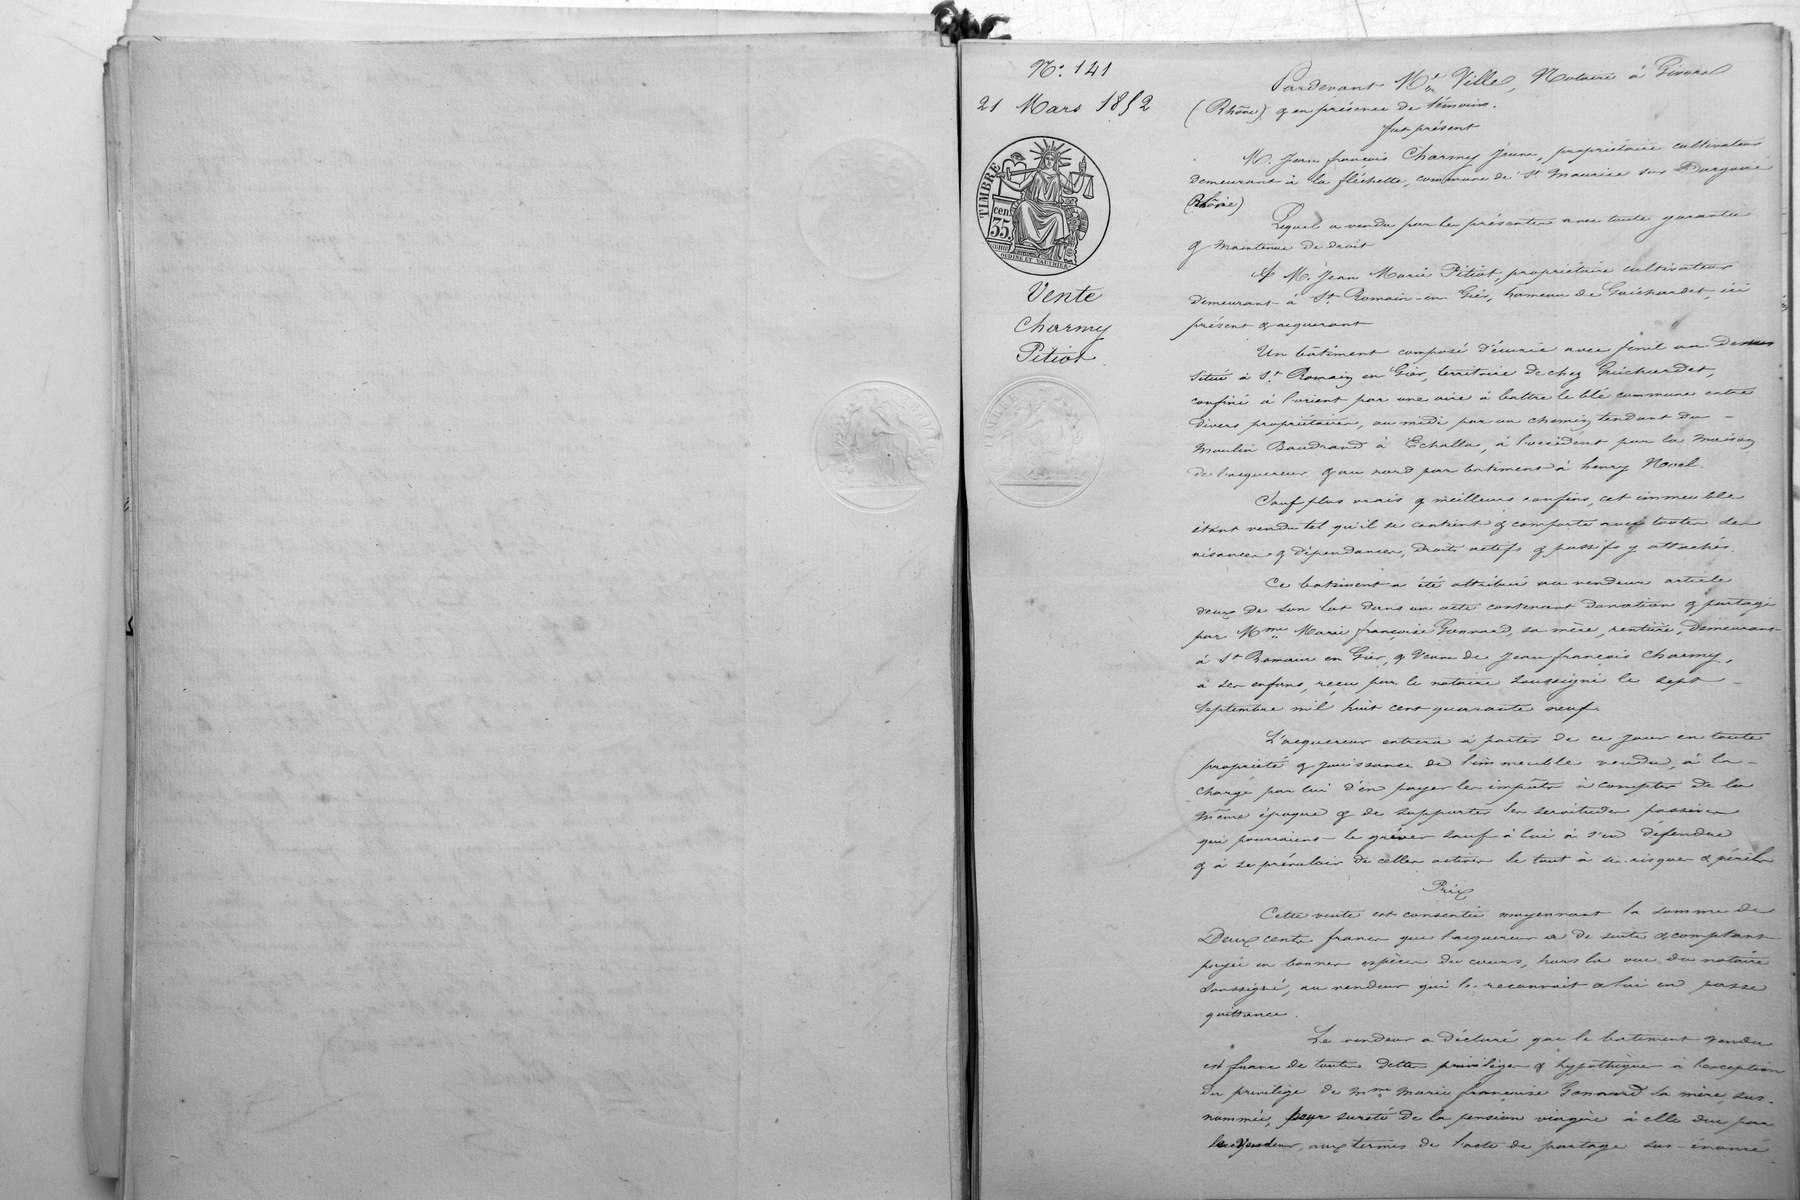 N° 141
21 Mars 1852
TIMBRE
cen.
35
OUDINÉ ET VAUTHIER
Vente
Charmy
Pitiot
Pardevant Me Ville, Notaire à Givors
(Rhône) & en présence de témoins.
fut présent
M. Jean françois Charmy Jeune, propriétaire cultivateur
demeurant à la fléchette, commune de St Maurice sur Dargoire
(Rhône)
Lequel a vendu par les présentes avec toute garantie
& maintenue de droit
A M. Jean Marie Pitiot, propriétaire cultivateur
demeurant à St Romain-en Gier, hameau de Guichardet, ici
présent & acquerant
Un bâtiment composé d'écurie avec fenil au dessus
situé à St Romain en Gier, territoire de chez Guichardet,
confiné à l'orient par une aire à battre le blé commune entre
divers propriétaires, au midi par un chemin tendant du
Moulin Baudrand à Echalla, à l'occident par la maison
de l'acquereur & au nord par batiment à henry Noval.
Sauf plus vrais & meilleurs confins, cet immeuble
étant vendu tel qu'il se contient & comporte avec toutes ses
aisances & dépendances, droits actifs & passifs y attachés
Ce batiment a été attribué au vendeur article
deux de son lot dans un acte contenant donation & partage
par Mme Marie françoise Gonnard, sa mère, rentière, demeurant
à St Romain en Gier, & Veuve de Jean françois Charmy,
à ses enfans, reçu par le notaire soussigné le sept
septembre mil huit cent quarante neuf.
L'acquereur entrera à partir de ce jour en toute
propriété & jouissance de l'immeuble vendu, à la
charge par lui d'en payer les impôts à compter de la
même époque & de supporter les servitudes passives
qui pourraient le gréver sauf à lui à s'en défendre
& à se prévaloir de celles actives le tout à ses risques & périls
Prix
Cette vente est consentie moyennant la somme de
Deux cents francs que l'acquereur a de suite & comptant
payé en bonnes espèces du cours, hors la vue du notaire
soussigné, au vendeur qui le reconnait & lui en passe
quittance.
Le vendeur a déclaré que le batiment vendu
est franc de toutes dettes privilèges & hypothèques à l'exception
du privilège de Mme Marie françoise Gonnard la mère, sus-
nommée, pour sureté de la pension viagère à elle due par
le Vendeur, aux termes de l'acte de partage sus-énoncé